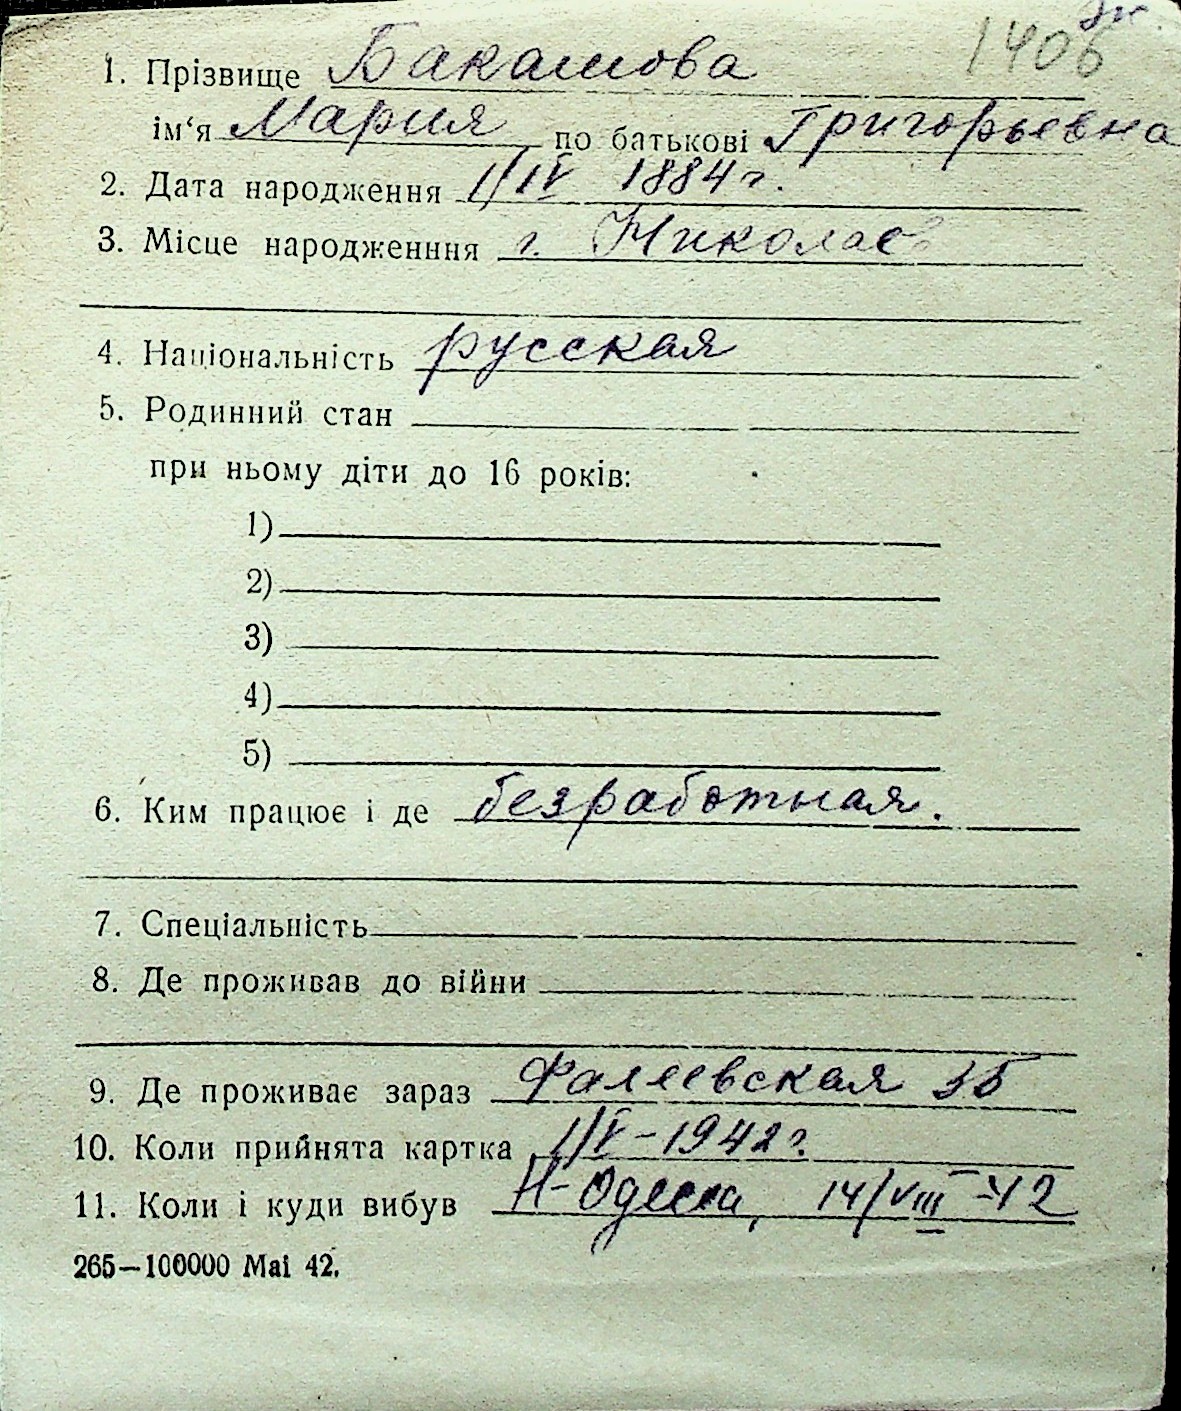 1406
1. Прізвище Бакашова
ім‘я Мария по батькові Григорьевна
2. Дата народження 1/IV 1884 г.
3. Місце народженння г. Николаев
4. Національність русская
5. Родинний стан
при ньому діти до 16 років:
1)
2)
3)
4)
5)
6. Ким працює і де безработная.
7. Спеціальність
8. Де проживав до війни
9. Де проживає зараз Фалеевская 35
10. Коли прийнята картка 1/V-1942 г.
11. Коли і куди вибув Н-Одесса, 14/VIII-42
265—100000 Mai 42.